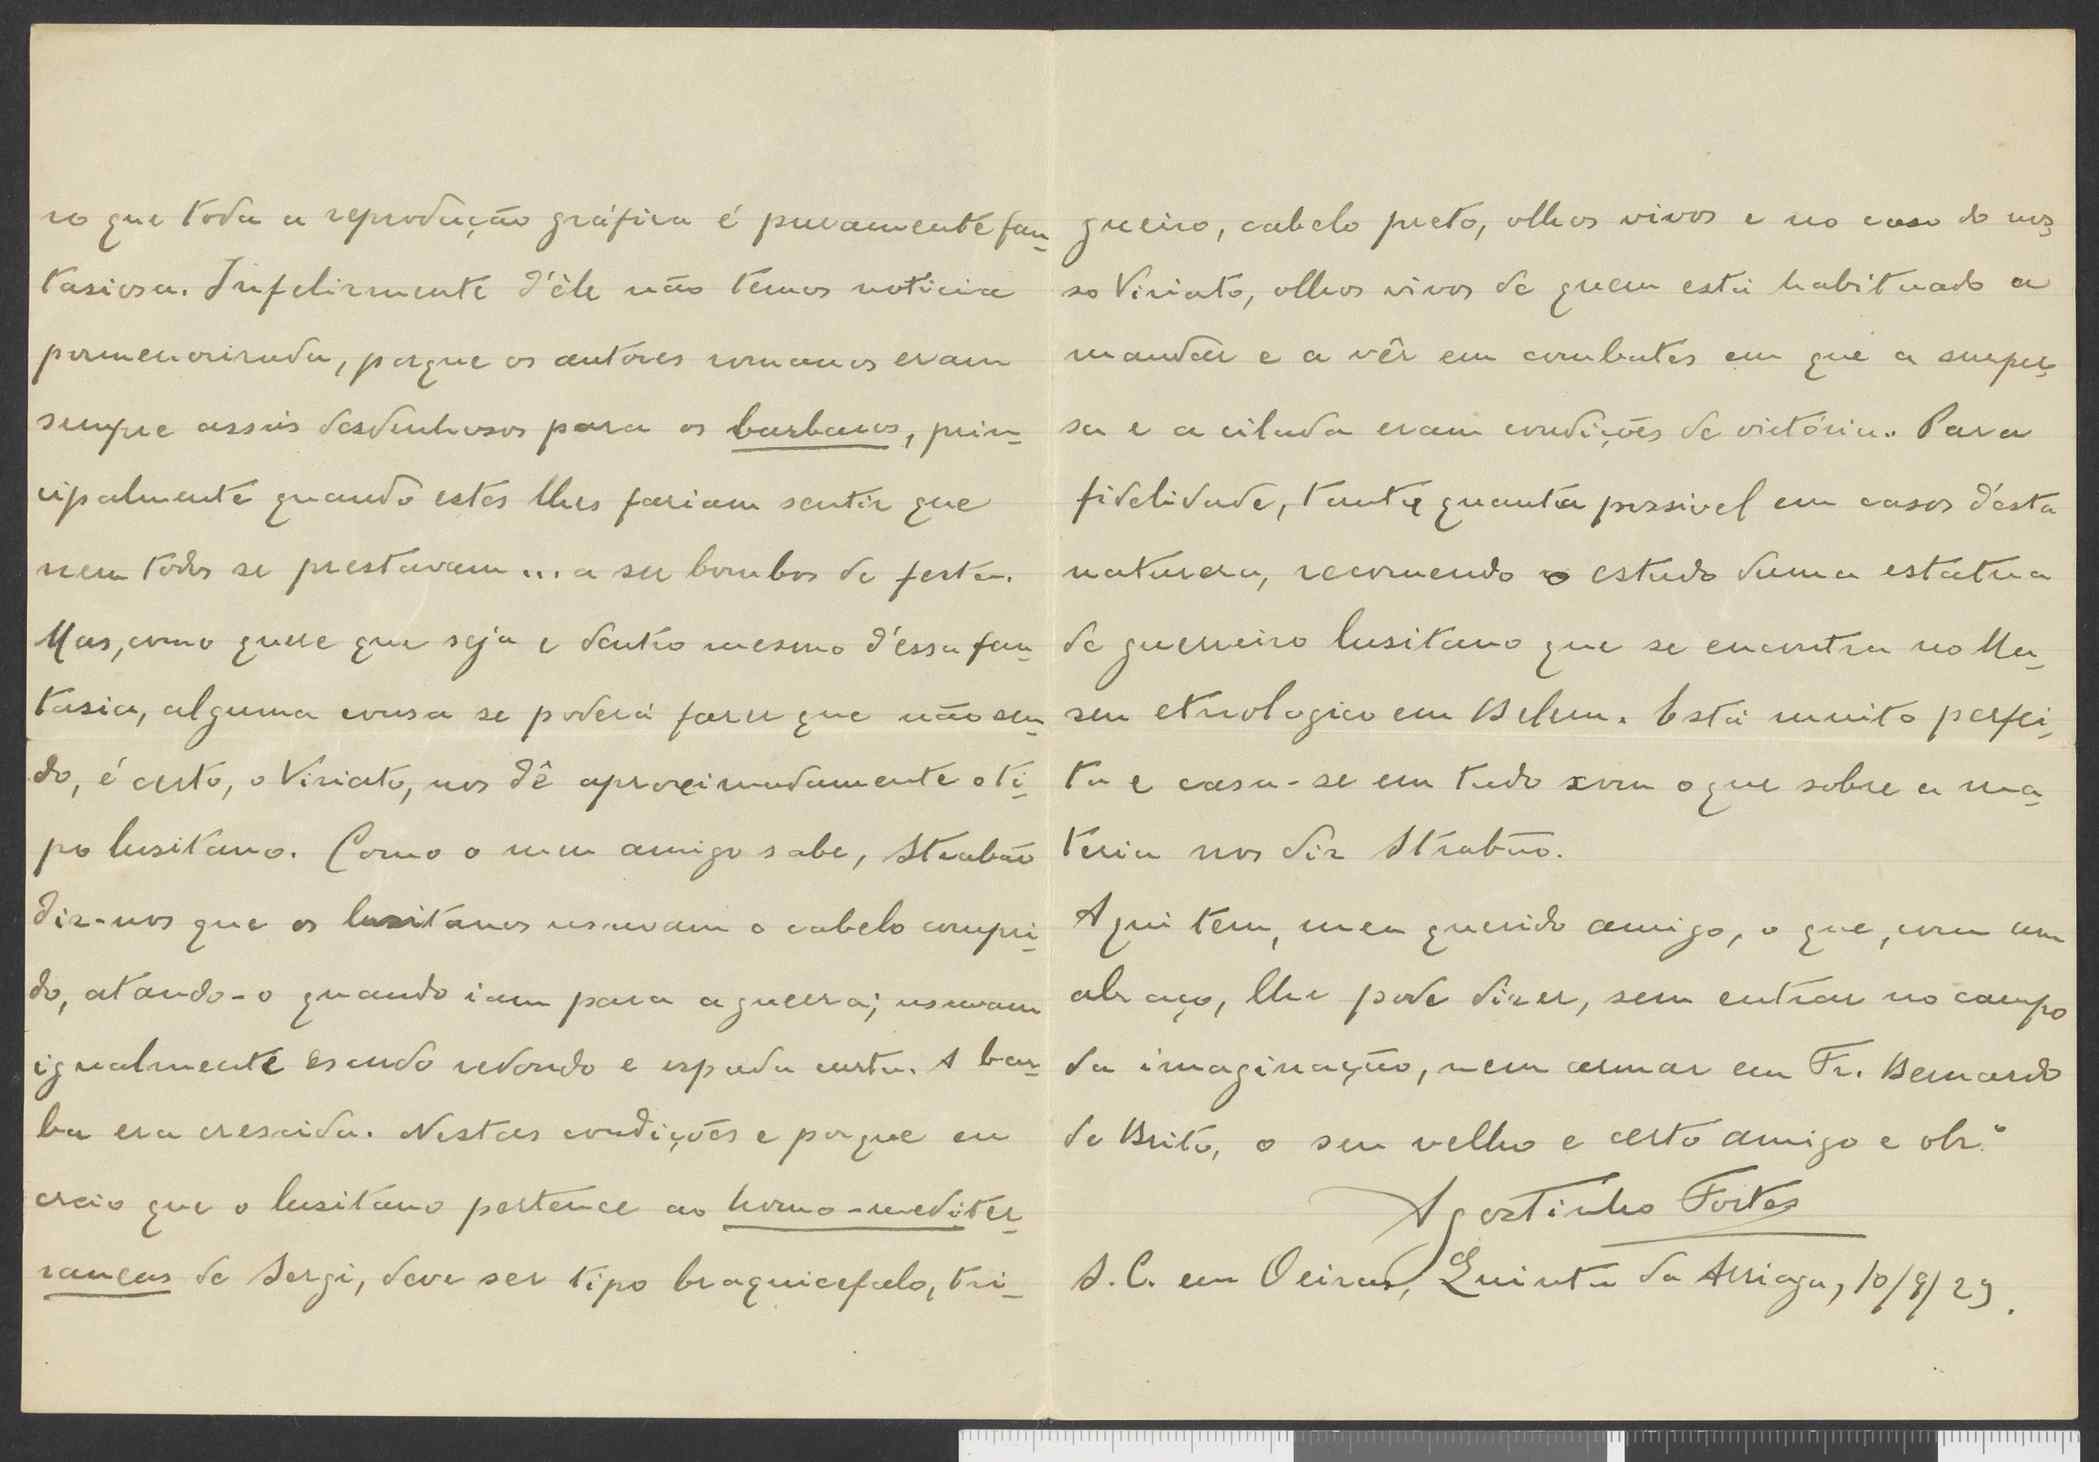 ro que toda a reprodução gráfica é puramente fan-
tasiosa. Infelizmente d'êle não temos noticia
pormenorizada, porque os autores romanos eram
sempre assás desdenhosos para os barbaros, prin-
cipalmente quando estes lhes faziam sentir que
nem todos se prestavam... a ser bombos de festa.
Mas, como quere que seja e dentro mesmo d'essa fan-
tasia, alguma cousa se poderá fazer que não sen-
do, é certo, o Viriato, nos dê aproximadamente o ti-
po lusitano. Como o meu amigo sabe, Strabão
diz-nos que os lusitanos usavam o cabelo compri-
do, atando-o quando iam para a guerra; usavam
igualmente escudo redondo e espada curta. A bar-
ba era crescida. Nestas condições e porque eu
creio que o lusitano pertence ao homo-mediter-
raneus de Sergi, deve ser tipo braquicefalo, tri-
gueiro, cabelo preto, olhos vivos e no caso do nos-
so Viriato, olhos vivos de quem está habituado a
mandar e a vêr em combates em que a surpre-
sa e a cilada eram condições de victória. Para
fidelidade, tanta quanta possivel em casos d'esta
natureza, recomendo o estudo duma estatua
de guerreiro lusitano que se encontra no Mu-
seu etnologico em Belem. Está muito perfei-
ta e casa-se em tudo com o que sobre a ma-
teria nos diz Strabão.
Aqui tem, meu querido amigo, o que, com um
abraço, lhe pode dizer, sem entrar no campo
da imaginação, nem armar em Fr. Bernardo
de Brito, o seu velho e certo amigo e obr.º
Agostinho Fortes
S. C. em Oeiras, Quinta da Arriaga, 10/9/29.